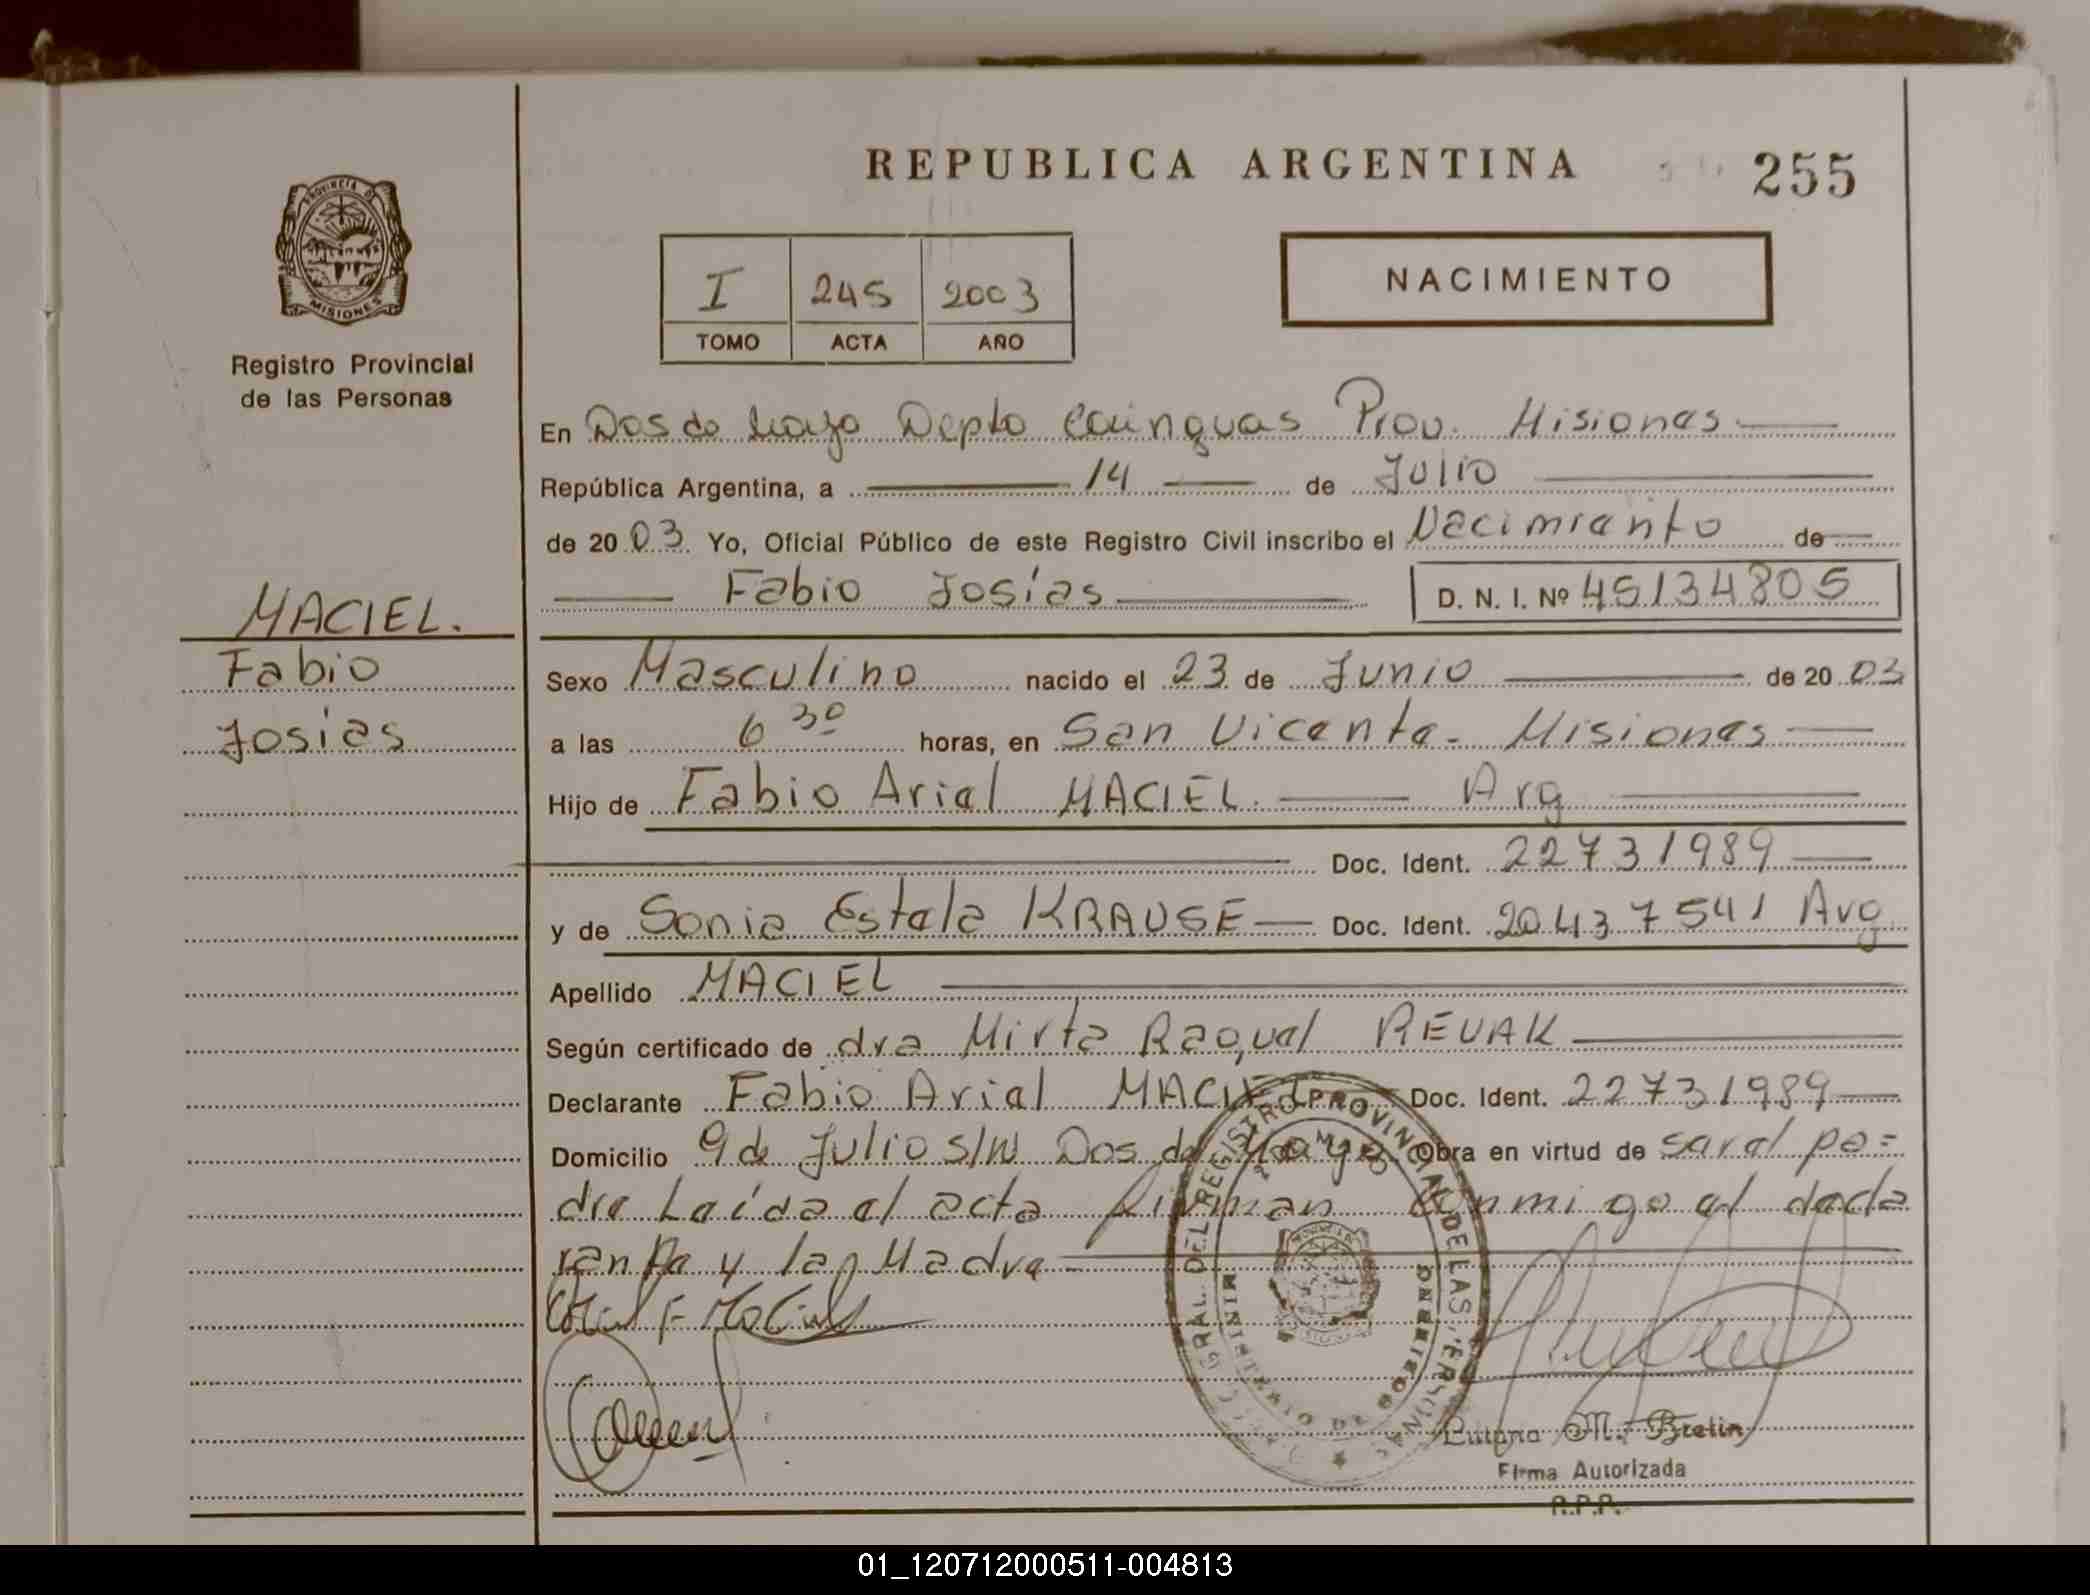 REPUBLICA ARGENTINA
255
PROVINCIA DE
MISIONES
Registro Provincial
de las Personas
I 245 2003
TOMO ACTA AÑO
NACIMIENTO
En Dos de Mayo Depto Cainguas Prov. Misiones
República Argentina, a 14 de Julio
de 2003 Yo, Oficial Público de este Registro Civil inscribo el Nacimiento de
Fabio Josías
D. N. I. Nº 45134805
MACIEL.
Fabio
Josías
Sexo Masculino nacido el 23 de Junio de 2003
a las 6 30 horas, en San Vicente - Misiones
Hijo de Fabio Ariel MACIEL. Arg
Doc. Ident. 22731989
y de Sonia Estela KRAUSE Doc. Ident. 20437541 Arg
Apellido MACIEL
Según certificado de dra Mirta Raquel REVAK
Declarante Fabio Ariel MACIEL Doc. Ident. 22731989
Domicilio 9 de Julio S/N Dos de Mayo Obra en virtud de ser el pa=
dre Leída el acta firman conmigo el decla
rante y la Madre
REGISTRO PROVINCIAL DE LAS PERSONAS
MINISTERIO DE GOBIERNO
M. Bretin
Firma Autorizada
R.P.P.
01_120712000511-004813